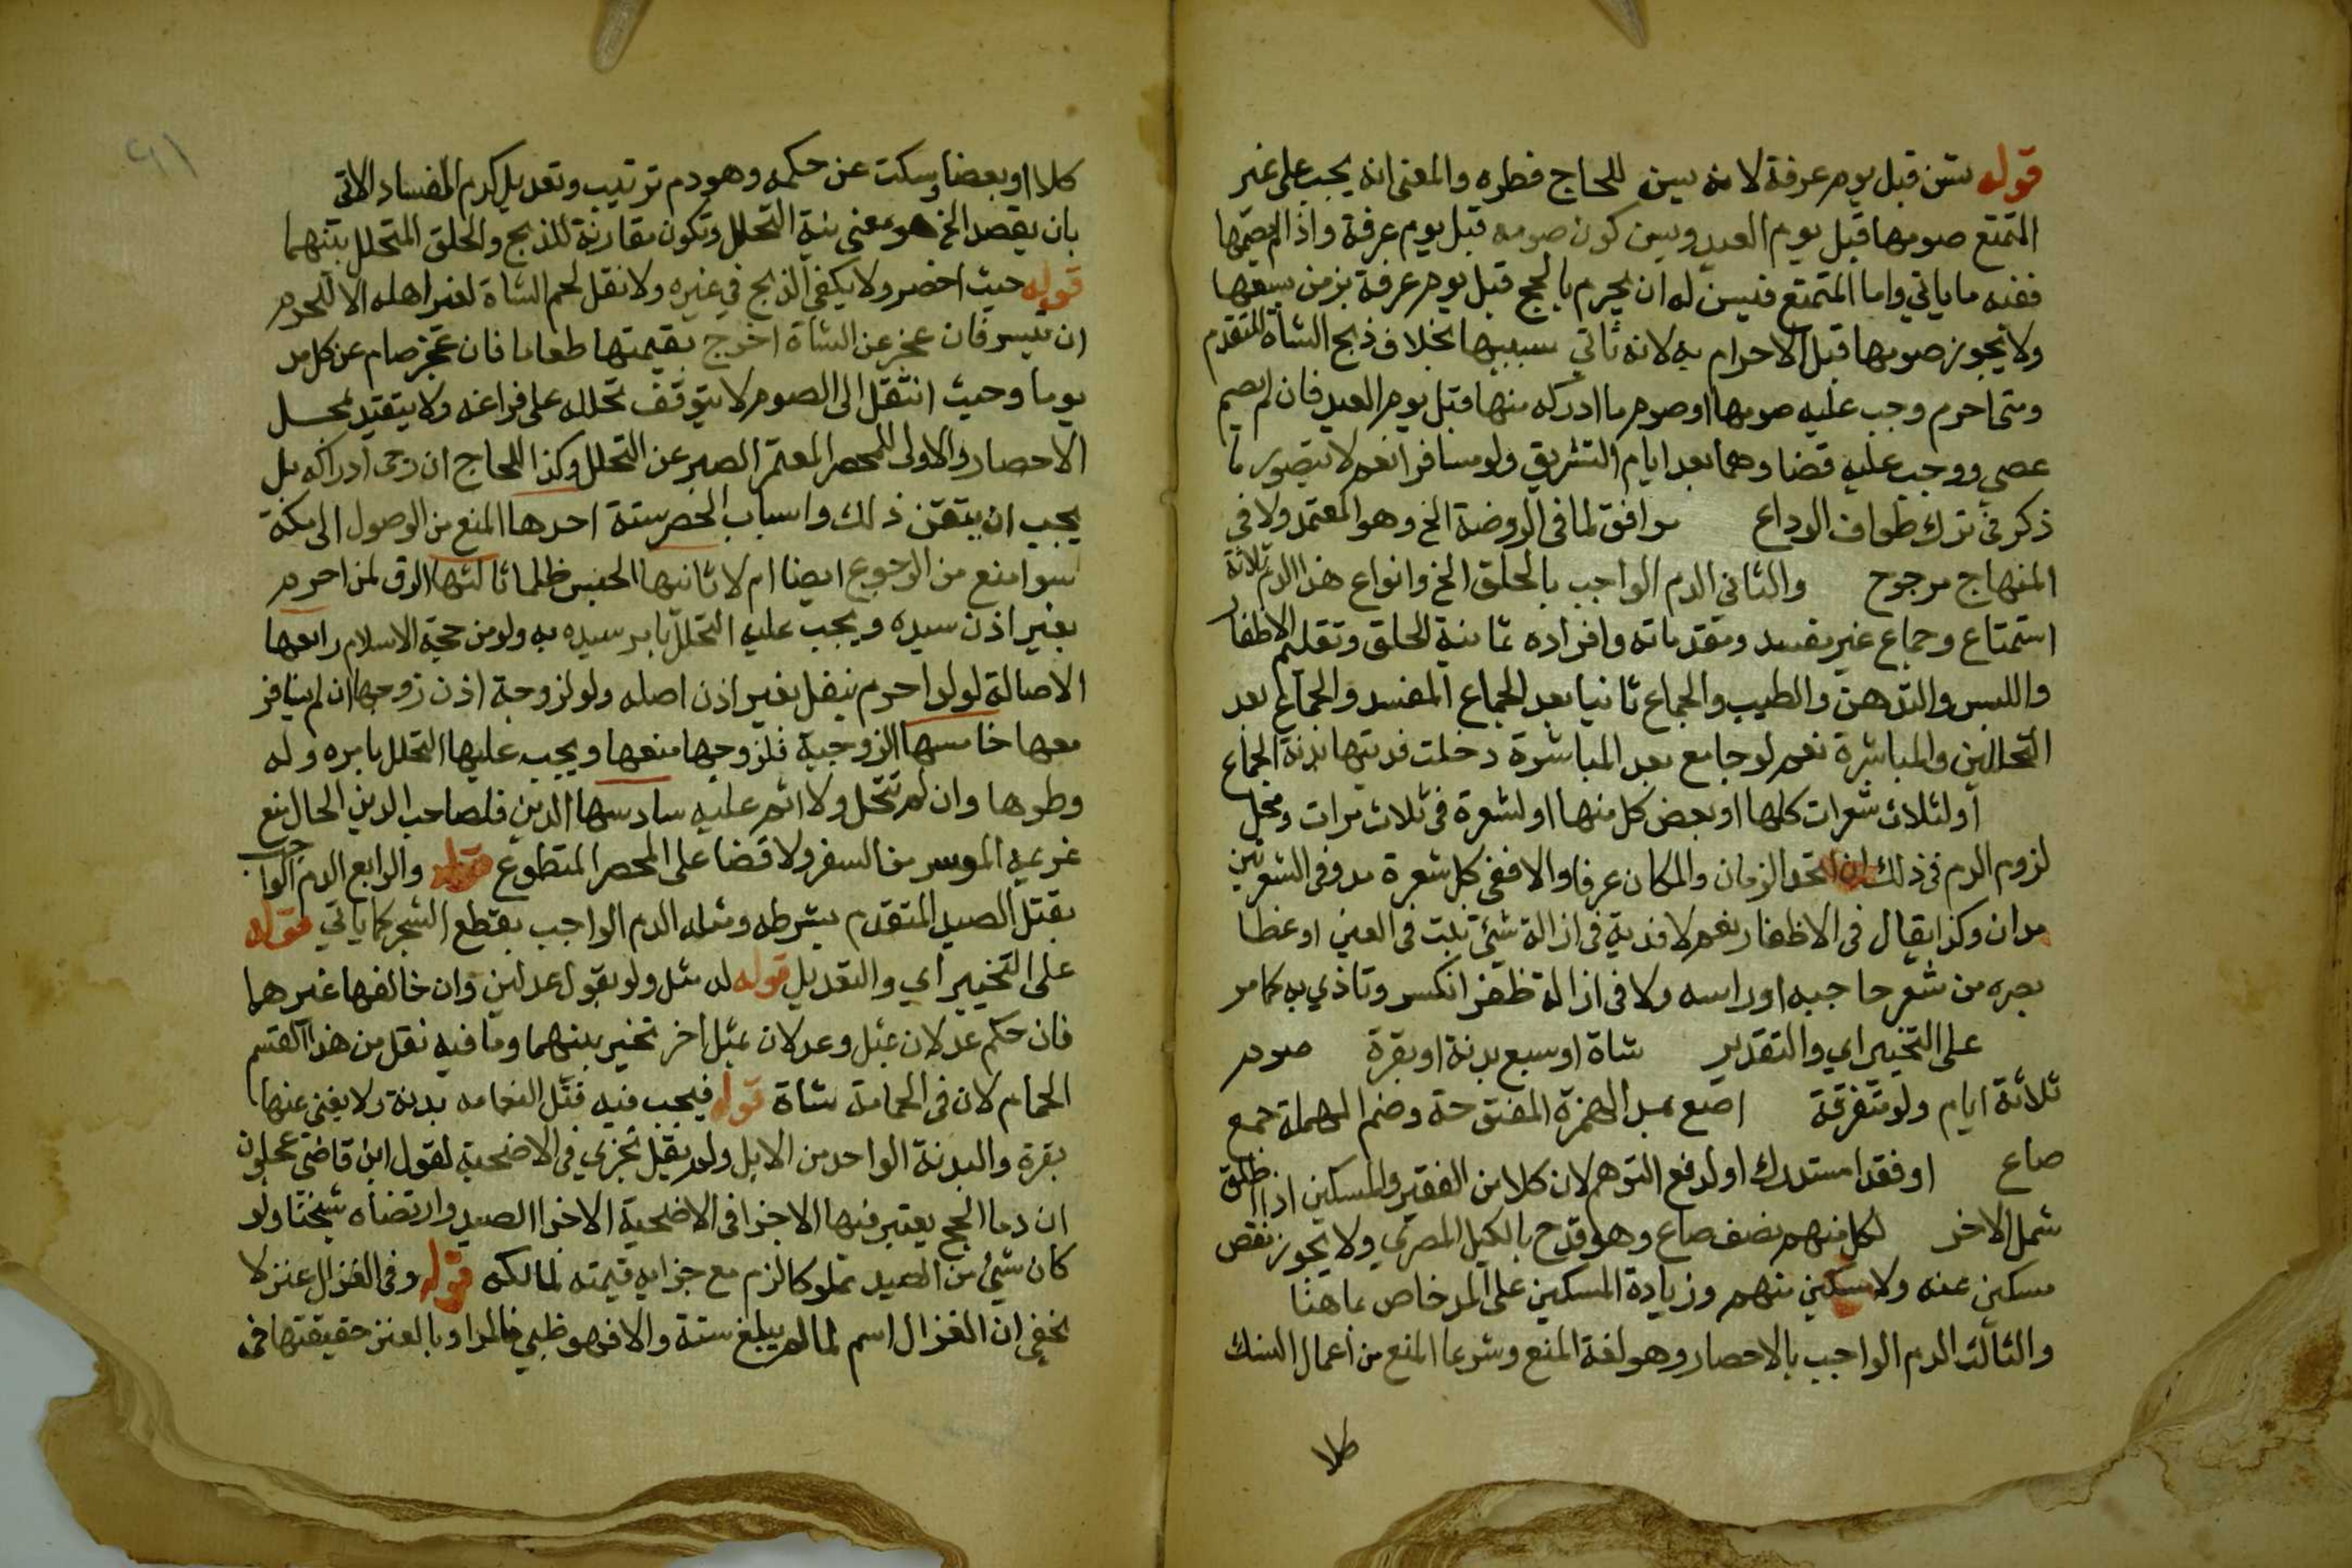 قوله تسن قبل يوم عرفة لانه يسن للحاج فطره والمعنى انه يجب على غير
المتمتع صومها قبل يوم العيد ويسن كون صومه قبل يوم عرفة واذا لم يصمها
ففيه ما ياتي واما المتمتع فيسن له ان يحرم بالحج قبل يوم عرفة بزمن يسعها
ولا يجوز صومها قبل الاحرام به لانه ثاني سببيها بخلاف ذبح الشاة المتقدم
ومتى احرم وجب عليه صومها او صوم ما ادركه منها قبل يوم العيد فان لم يصم
عصى ووجب عليه قضاوها بعد ايام التشريق ولو مسافرا نعم لا يتصور ما
ذكر في ترك طواف الوداع موافق لما في الروضة الخ وهو المعتمد ولا في
المنهاج مرجوح والثاني الدم الواجب بالحلق الخ وانواع هذا الدم ثلاثة
استمتاع وجماع غير مفسد ومقدماته وافراده ثمانية الحلق وتقليم الاظفار
واللبس والتدهن والطيب والجماع ثانيا بعد الجماع المفسد والجماع بعد
التحللين والمباشرة نعم لو جامع بعد المباشرة دخلت فديتها بدنة الجماع
او لثلاث شعرات كلها او بعض كل منها او لشعرة في ثلاث مرات ومحل
لزوم الدم في ذلك ان اتحد الزمان والمكان عرفا والا ففي كل شعرة مد وفي الشعرتين
مدان وكذا يقال في الاظفار نعم لا فدية في ازالة شيئ نبت في العين او غطا
بصره من شعر حاجبه او راسه ولا في ازالة ظفر انكسر وتاذي به كما مر
على التخيير اي والتقدير شاة او سبع بدنة او بقرة صوم
ثلاثة ايام ولو متفرقة اصع بمد الهمزة المفتوحة وضم المهملة جمع
صاع او فقرا مستدرك او لدفع التوهم لان كلا من الفقير والمسكين اذا اطلق
شمل الاخر لكل منهم نصف صاع وهو قدح بالكيل المصري ولا يجوز نقص
مسكين عنه ولا مسكين منهم وزيادة المسكين على المد خاص بما هنا
والثالث الدم الواجب بالاحصار وهو لغة المنع وشرعا المنع من اعمال النسك
كلا
كلا او بعضا وسكت عن حكمه وهو دم ترتيب وتعديل كدم الفساد الاتي
بان يقصد الخ هو معنى نية التحلل وتكون مقارنة للذبح والحلق المتحلل بينهما
قوله حيث احصر ولا يكفي الذبح في غيره ولا نقل لحم الشاة لغير اهله الا للحرم
ان تيسر فان عجز عن الشاة اخرج بقيمتها طعاما فان عجز صام عن كل مد
يوما وحيث انتقل الى الصوم لا يتوقف تحلله على فراغه ولا يتقيد بمحل
الاحصار والاولى للمحصر المعتمر الصبر عن التحلل وكذا للحاج ان رجى ادراكه بل
يجب ان يتقن ذلك واسباب الحصر ستة احدها المنع من الوصول الى مكة
سوا منع من الرجوع ايضا ام لا ثانيها الحبس ظلما ثالثها الرق لمن احرم
بغير اذن سيده ويجب عليه التحلل بامر سيده به ولو من حجة الاسلام رابعها
الاصالة لو لو احرم بنفل بغير اذن اصله ولو لزوجة اذن زوجها ان لم يسافر
معها خامسها الزوجية فلزوجها منعها ويجب عليها التحلل بامره وله
وطوها وان لم تتحل ولا اثم عليه سادسها الدين فلصاحب الدين الحال منع
غريمه الموسر من السفر ولا قضا على المحصر المتطوع قوله والرابع الدم الواجب
بقتل الصيد المتقدم بشرطه ومثله الدم الواجب بقطع الشجر كما ياتي قوله
على التخيير اي والتعديل قوله له مثل ولو بقول عدلين وان خالفها غيرهما
فان حكم عدلان بمثل وعدلان بمثل اخر تخير بينهما وما فيه نقل من هذا القسم
الحمام لان في الحمامة شاة قوله فيجب فيه قتل النعامه بدنة ولا يغني عنها
بقرة والبدنة الواحد من الابل ولم يقيل تجزي في الاضحية لقول ابن قاضي عجلون
ان دما الحج يعتبر فيها الاجزا في الاضحية الا جزا الصيد وارتضاه شيخنا ولو
كان شيئ من الصيد مملوكا لزم مع جزايه قيمته لمالكه قوله وفي الغزال عنز لا
يخفى ان الغزال اسم لما لم يبلغ ستة والا فهو ظبي فالمراد بالعنز حقيقتها في